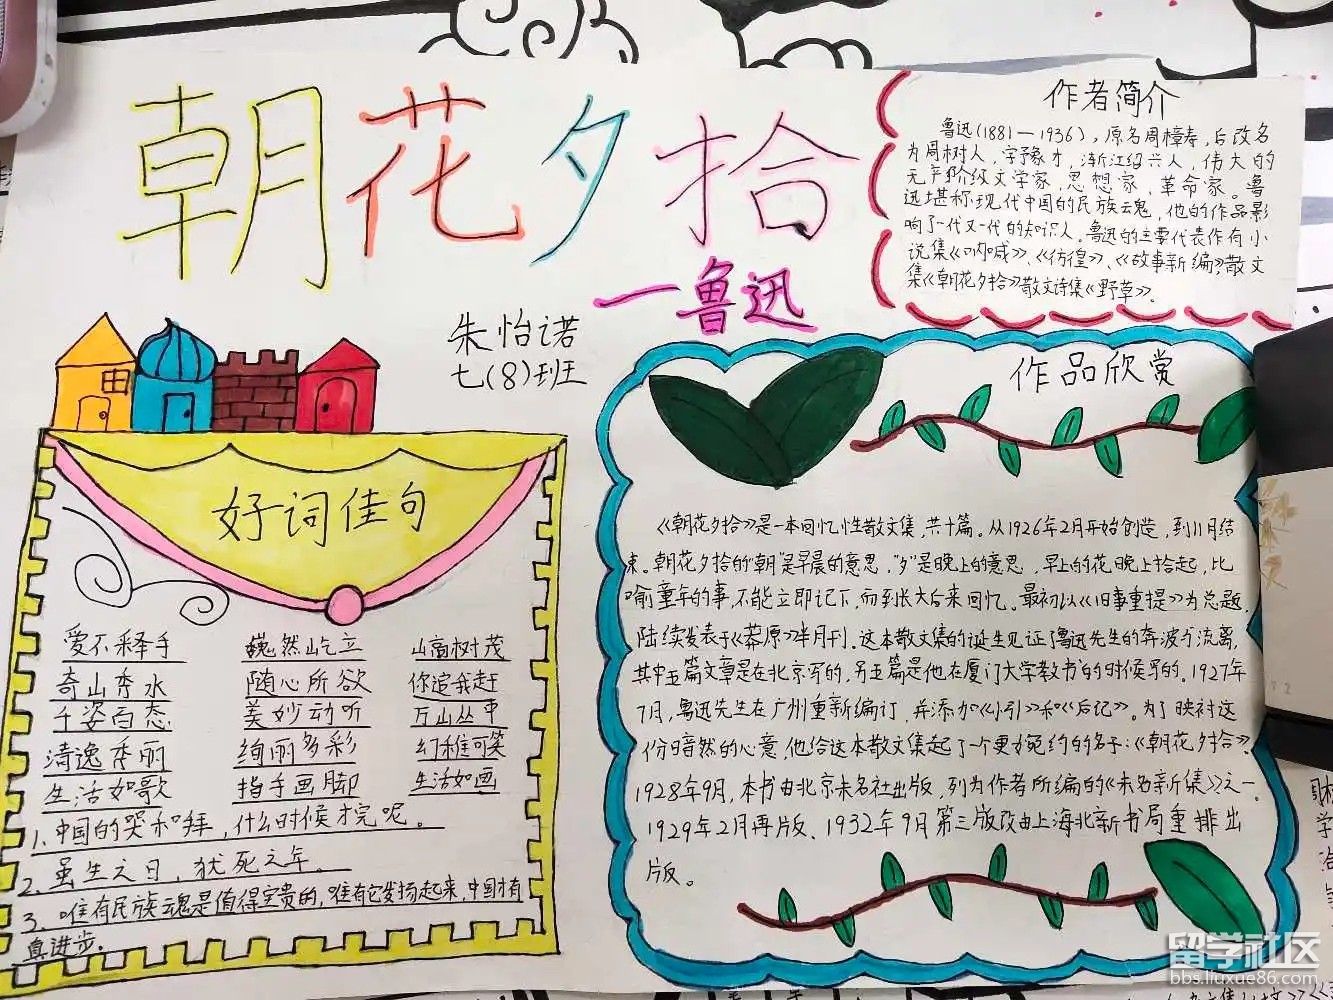 朝花夕拾
一鲁迅
朱怡诺
七(8)班
作者简介
鲁迅(1881—1936),原名周樟寿,后改名
为周树人,字豫才,浙江绍兴人,伟大的
无产阶级文学家,思想家,革命家。鲁
迅堪称现代中国的民族云魂,他的作品影
响了一代又一代的知识人。鲁迅的主要代表作有小
说集《呐喊》、《彷徨》、《故事新编》散文
集《朝花夕拾》散文诗集《野草》。
好词佳句
爱不释手 巍然屹立 山高树茂
奇山秀水 随心所欲 你追我赶
千姿百态 美妙动听 万山丛中
清逸秀丽 绚丽多彩 幻稚可笑
生活如歌 指手画脚 生活如画
1、中国的哭和拜,什么时候才完呢。
2、虽生之日、犹死之年。
3、唯有民族云魂是值得宝贵的,唯有它发扬起来,中国才有
真进步。
作品欣赏
《朝花夕拾》是一本回忆性散文集,共十篇。从1926年2月开始创造,到11月结
束。朝花夕拾的"朝"是早晨的意思,"夕"是晚上的意思,早上的花晚上拾起,比
喻童年的事,不能立即记下,而到长大后来回忆。最初以《旧事重提》为总题,
陆续发表于《莽原》半月刊。这本散文集的诞生见证了鲁迅先生的奔波与流离,
其中五篇文章是在北京写的,另五篇是他在厦门大学教书的时候写的。1927年
7月,鲁迅先生在广州重新编订,并添加《小引》和《后记》。为了映衬这
份暗然的心意,他给这本散文集起了一个更为宛约的名子:《朝花夕拾》,
1928年9月,本书由北京未名社出版,列为作者所编的《未名新集》之一,
1929年2月再版、1932年9月第三版改由上海北新书局重排出
版。
留学社区
bbs.liuxue86.com